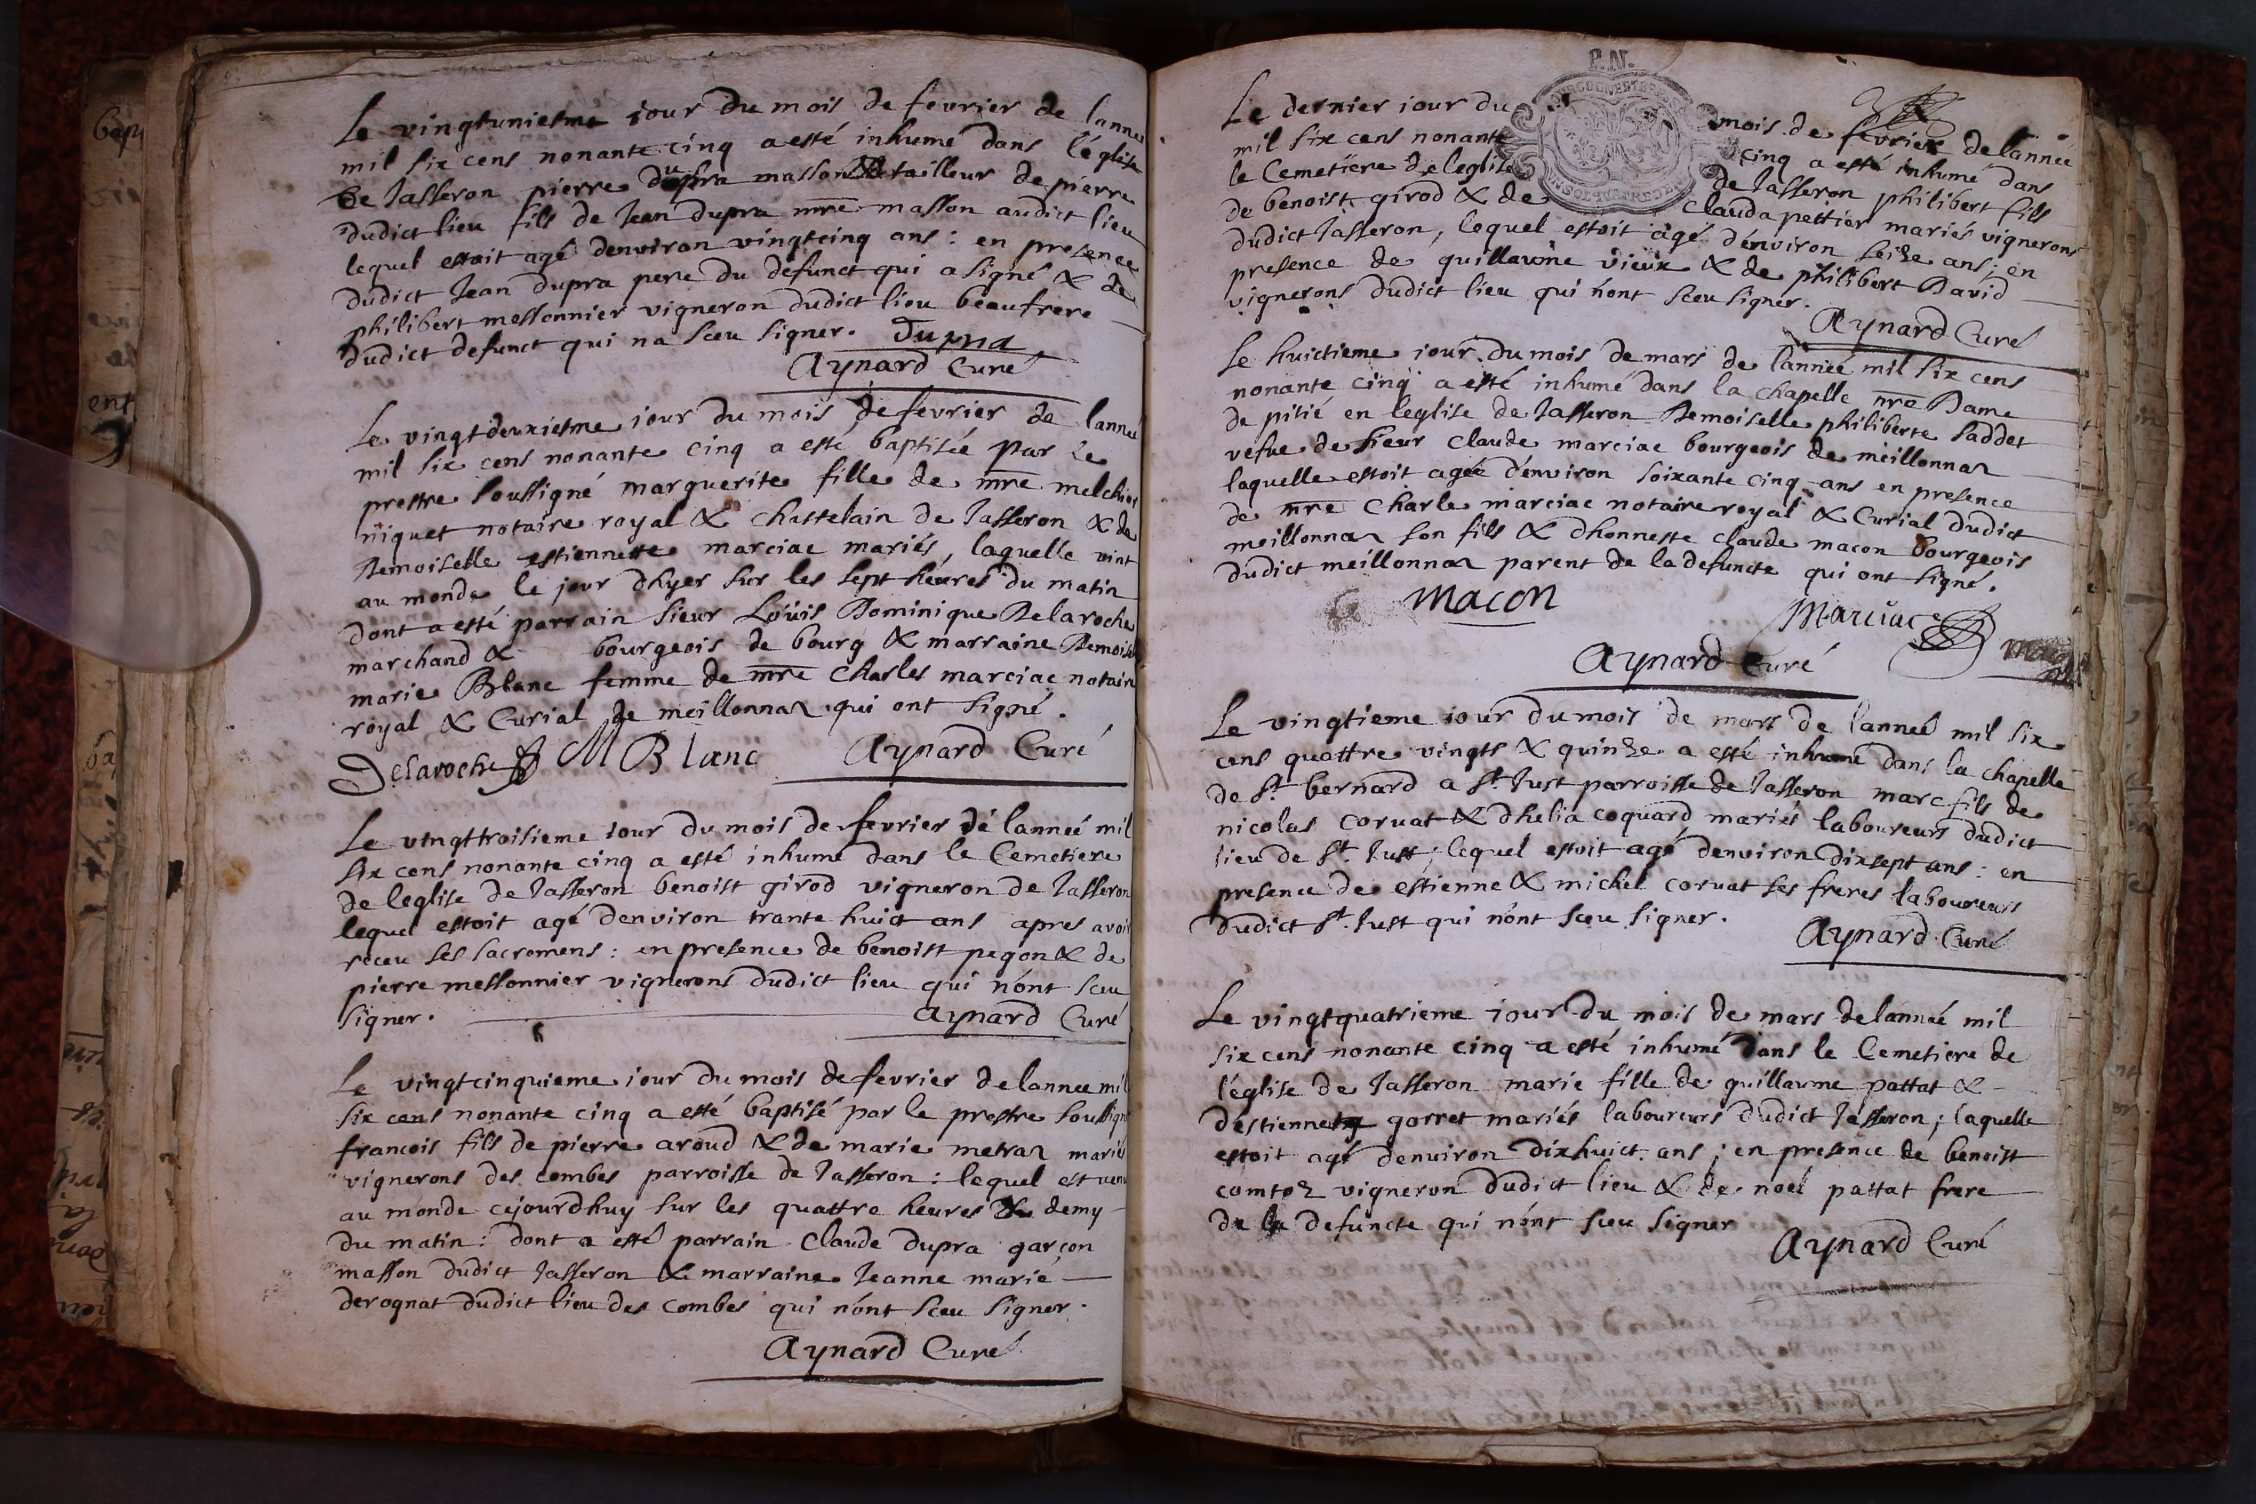 Le vingtuniesme jour du mois de fevrier de lannee
mil six cens nonante cinq a esté inhumé dans l'église
de Jasseron pierre dupra masson & tailleur de pierre
dudict lieu fils de Jean dupra mre masson audict lieu
lequel estoit agé denviron vingtcinq ans : en presence
dudict Jean dupra pere du defunct qui a signé & de
philibert messonnier vigneron dudict lieu beaufrere
dudict defunct qui na sceu signer. Dupra
Aynard Curé
Le vingtdeuxiesme jour du mois de fevrier de lannee
mil six cens nonante cinq a esté baptisée par le
prestre soussigné marguerite fille de mre melchior
niquet notaire royal & chastelain de Jasseron & de
Demoiselle estiennette marciac mariés, laquelle vint
au monde le jour dhyer sur les sept heures du matin
dont a esté parrain sieur Loüis Dominique Delaroche
marchand & bourgeois de bourg & marraine Demoiselle
marie Blanc femme de mre Charles marciac notaire
royal & Curial de meillonnaz qui ont signé.
Delaroche M Blanc Aynard Curé
Le vingttroisieme jour du mois de fevrier de lanneé mil
six cens nonante cinq a esté inhumé dans le Cemetiere
de leglise de Jasseron benoist girod vigneron de Jasseron
lequel estoit agé denviron trante huict ans apres avoir
receu ses sacremens : en presence de benoist pegon & de
pierre messonnier vignerons dudict lieu qui n'ont sceu
signer. Aynard Curé
Le vingtcinquieme jour du mois de fevrier de lannee mil
six cens nonante cinq a esté baptisé par le prestre soussigné
francois fils de pierre aroud & de marie metraz mariés
vignerons des combes parroisse de Jasseron : lequel est venu
au monde cejourdhuy sur les quattre heures & demy
du matin : dont a esté parrain Claude dupra garçon
masson dudict Jasseron & marraine Jeanne marié
derognat dudict lieu des combes qui n'ont sceu signer.
Aynard Curé
P. N.
Le dernier jour du mois de fevrier de lanneé
mil six cens nonante cinq a esté inhumé dans
le Cemetiere de leglise de Jasseron philibert fils
de benoist girod & de Clauda pettier mariés vignerons
dudict Jasseron, lequel estoit agé d'environ seize ans ; en
presence de guillaume vieux & de philibert David
vignerons dudict lieu qui n'ont sceu signer.
Aynard Curé
Le huictieme jour du mois de mars de lanneé mil six cens
nonante cinq a esté inhumé dans la chapelle nre Dame
de pitié en leglise de Jasseron Demoiselle philiberte saddet
vefue de sieur Claude marciac bourgeois de meillonnaz
laquelle estoit ageé d'environ soixante cinq ans en presence
de mre Charle marciac notaire royal & Curial dudict
meillonnaz son fils & dhonneste Claude macon bourgeois
dudict meillonnaz parent de la defuncte qui ont signé.
Macon Marciac
Aynard Curé
Le vingtieme jour du mois de mars de lanneé mil six
cens quattre vingts & quinze a esté inhumé dans la chapelle
de St bernard a St Just parroisse de Jasseron marc fils de
nicolas coruat & dhelia coquard mariés laboureurs dudict
lieu de St. Just ; lequel estoit agé denviron dixsept ans : en
presence de estienne & michel coruat ses freres laboureurs
dudict St. Just qui n'ont sceu signer.
Aynard Curé
Le vingtquatrieme jour du mois de mars de lanneé mil
six cens nonante cinq a esté inhumé dans le Cemetiere de
l'église de Jasseron marie fille de guillaume pattat &
destiennette gorret mariés laboureurs dudict Jasseron ; laquelle
estoit agé denviron dixhuict ans ; en presence de benoist
comtoz vigneron dudict lieu & de noel pattat frere
de la defuncte qui n'ont sceu signer
Aynard Curé